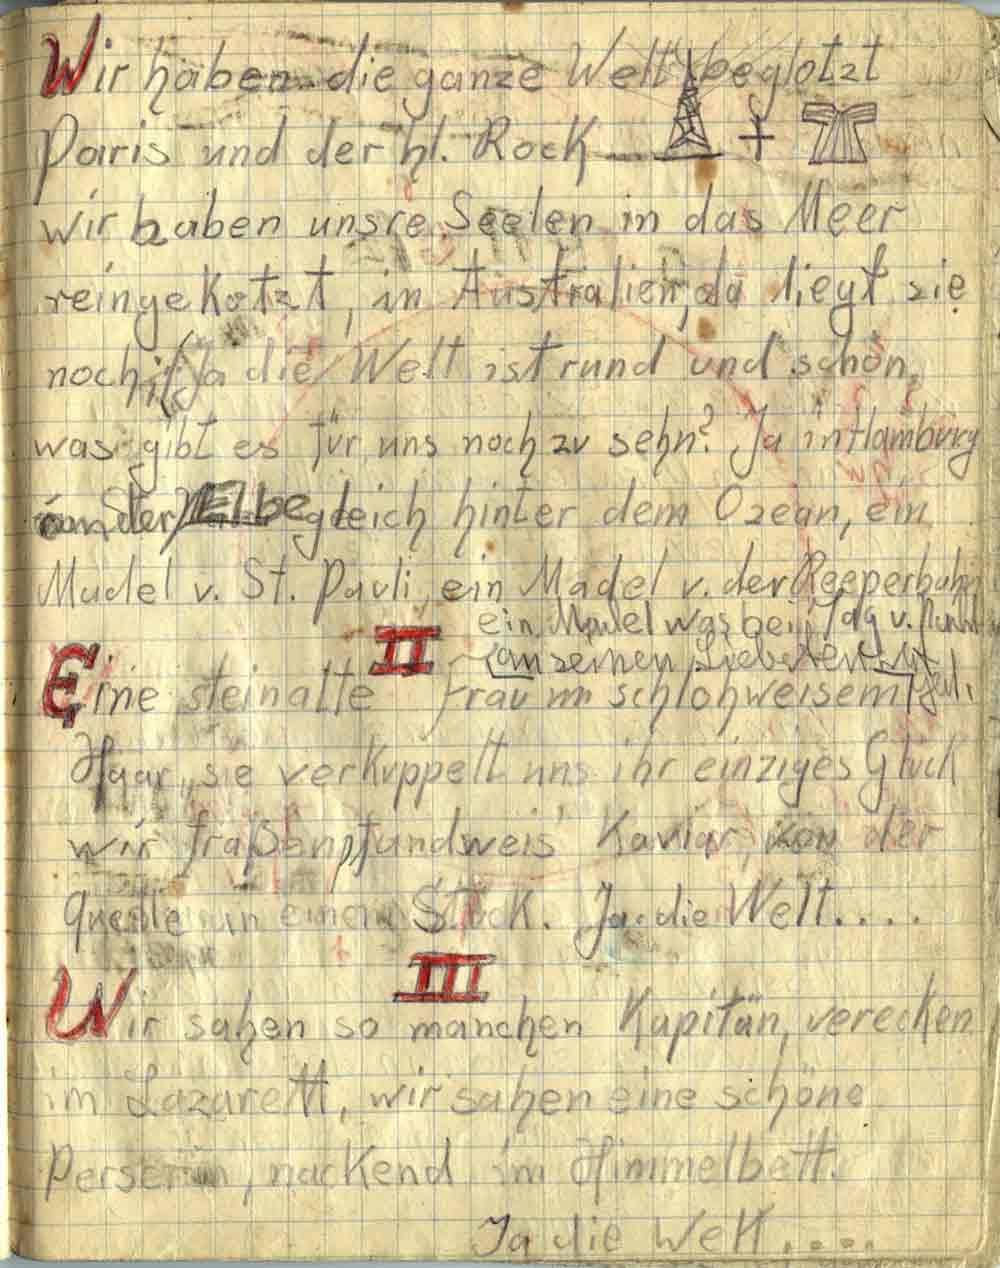 Wir haben die ganze Welt beglotzt
Paris und der hl. Rock
wir haben unsre Seelen in das Meer
reingekotzt, in Australien, da liegt sie
noch, Ja die Welt ist rund und schön,
was gibt es für uns noch zu sehn? Ja in Hamburg
an der Elbe gleich hinter dem Ozean, ein
Madel v. St. Pauli, ein Madel v. der Reeperbahn
ein Madel was bei Tag v.
an seinen Liebsten
II
Eine steinalte Frau m schlohweisem
Haar, sie verkuppelt uns ihr einziges Glück
wir fraßen pfundweis' Kaviar, von der
Quelle an einem Stück. Ja die Welt....
III
Wir sahen so manchen Kapitän, verecken
im Lazarett, wir sahen eine schöne
Perserin, nackend im Himmelbett.
Ja die Welt....